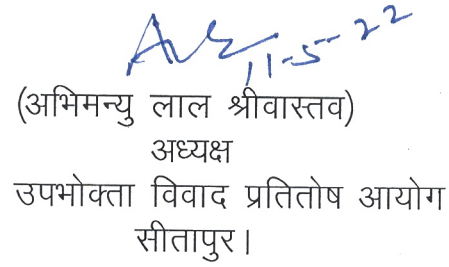 11-5-22
(अभिमन्यु लाल श्रीवास्तव)
अध्यक्ष
उपभोक्ता विवाद प्रतितोष आयोग
सीतापुर।